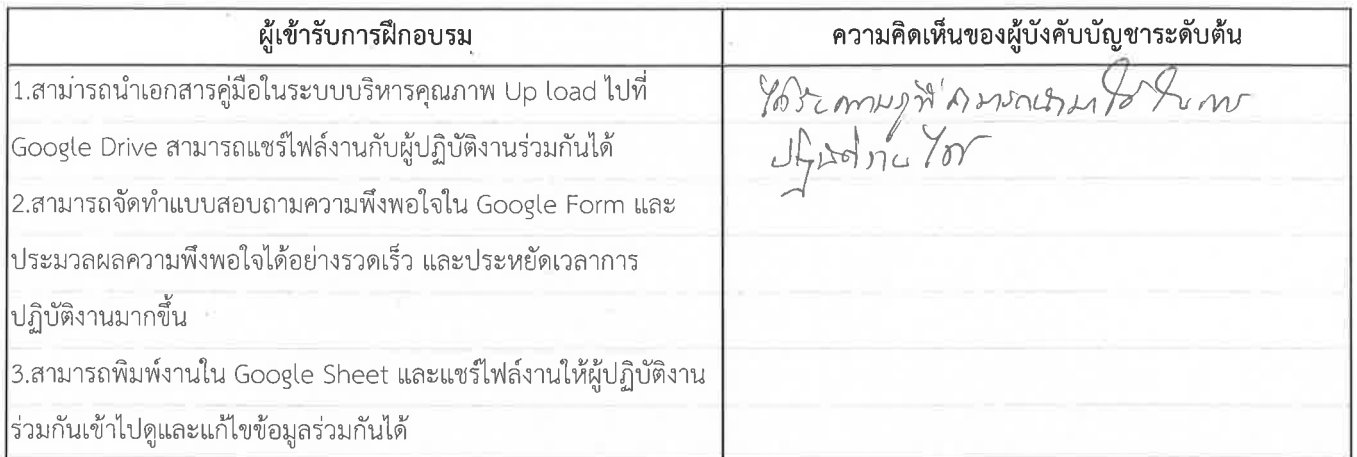 ผู้เข้ารับการฝึกอบรม
ความคิดเห็นของผู้บังคับบัญชาระดับต้น
1.สามารถนำเอกสารคู่มือในระบบบริหารคุณภาพ Up load ไปที่
Google Drive สามารถแชร์ไฟล์งานกับผู้ปฏิบัติงานร่วมกันได้
2.สามารถจัดทำแบบสอบถามความพึงพอใจใน Google Form และ
ประมวลผลความพึงพอใจได้อย่างรวดเร็ว และประหยัดเวลาการ
ปฏิบัติงานมากขึ้น
3.สามารถพิมพ์งานใน Google Sheet และแชร์ไฟล์งานให้ผู้ปฏิบัติงาน
ร่วมกันเข้าไปดูและแก้ไขข้อมูลร่วมกันได้
ความรู้ที่สามารถนำมาใช้ในการ
ปฏิบัติงานได้